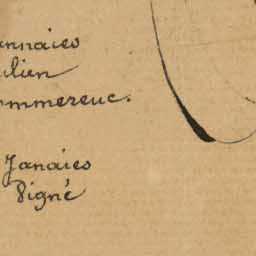 nnaies
ilien
mmereuc.
Janaies
Vigné